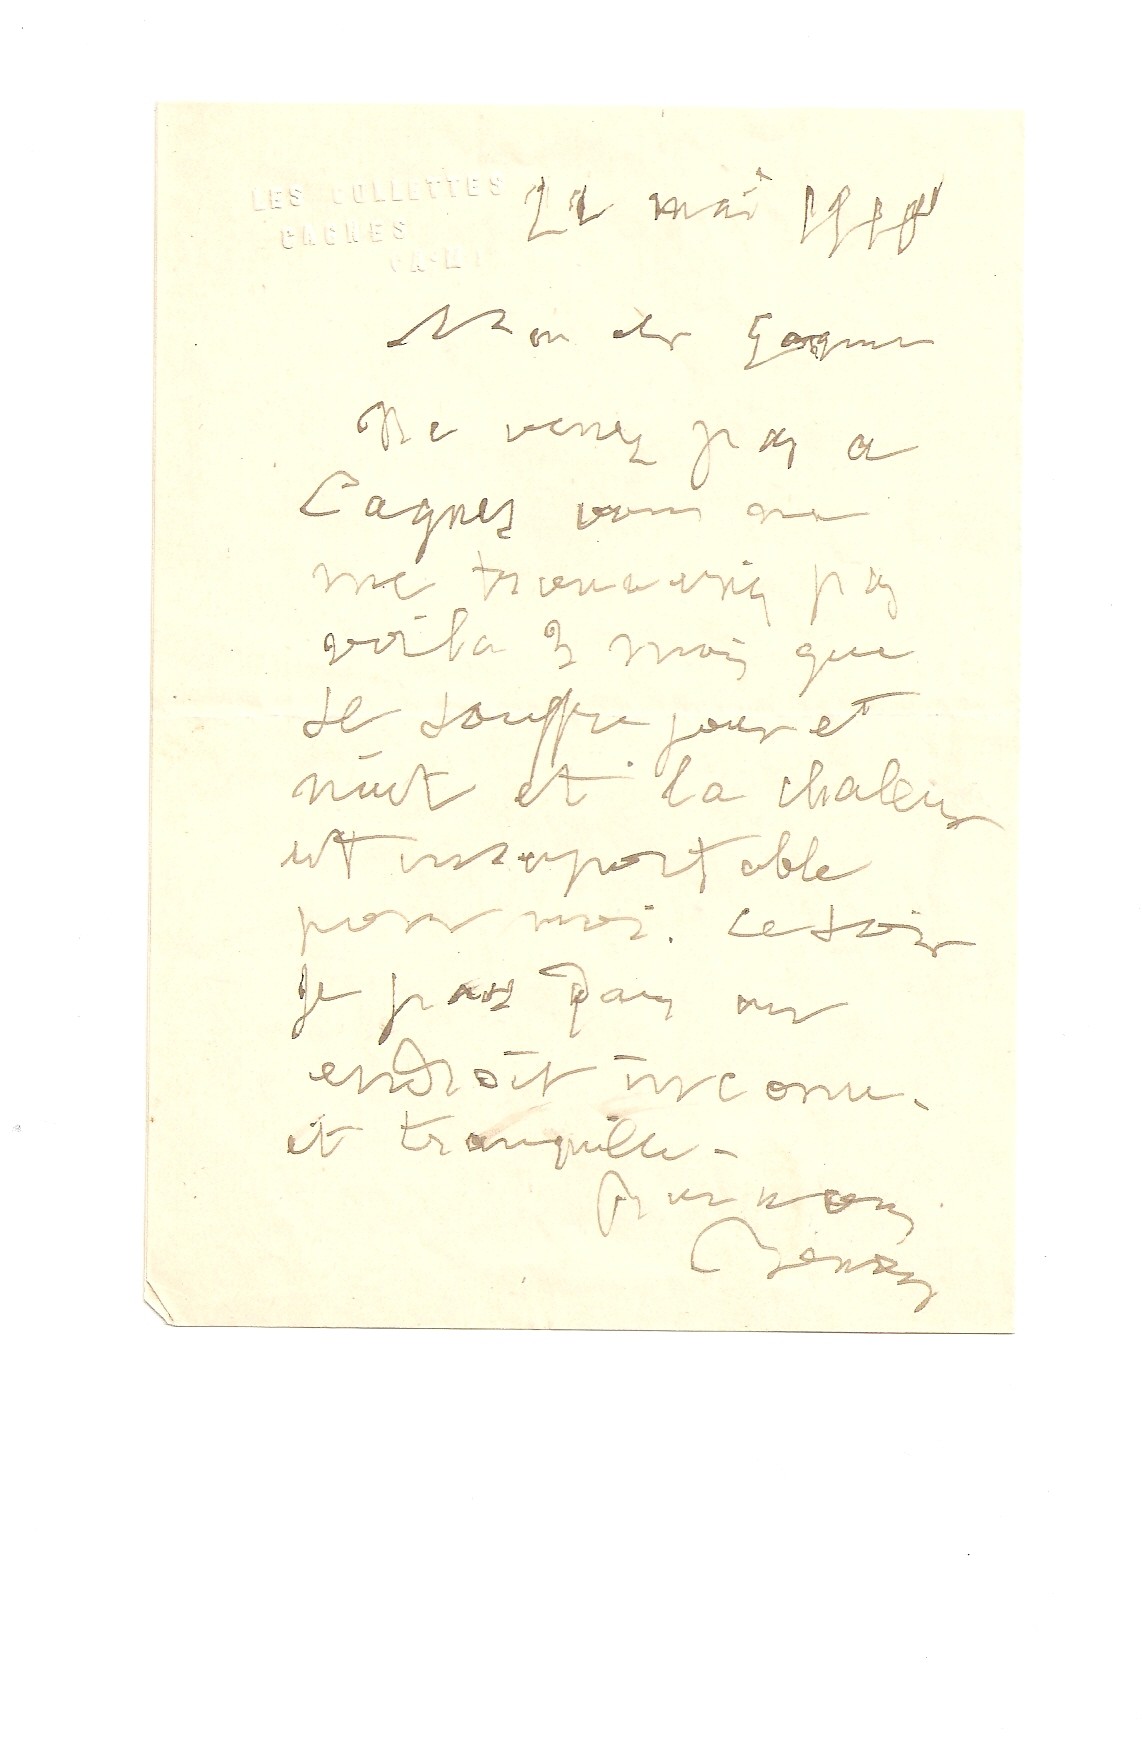 LES COLLETTES
CAGNES
(A-M)
22 mai 1918
Mon cher
Ne venez pas a
Cagnes vous ne
me trouverez pas
voila 3 mois que
je souffre jour et
nuit et la chaleur
est insuportable
pour moi. ce soir
je pars dans un
endroit inconu.
et tranquille -
Renoir